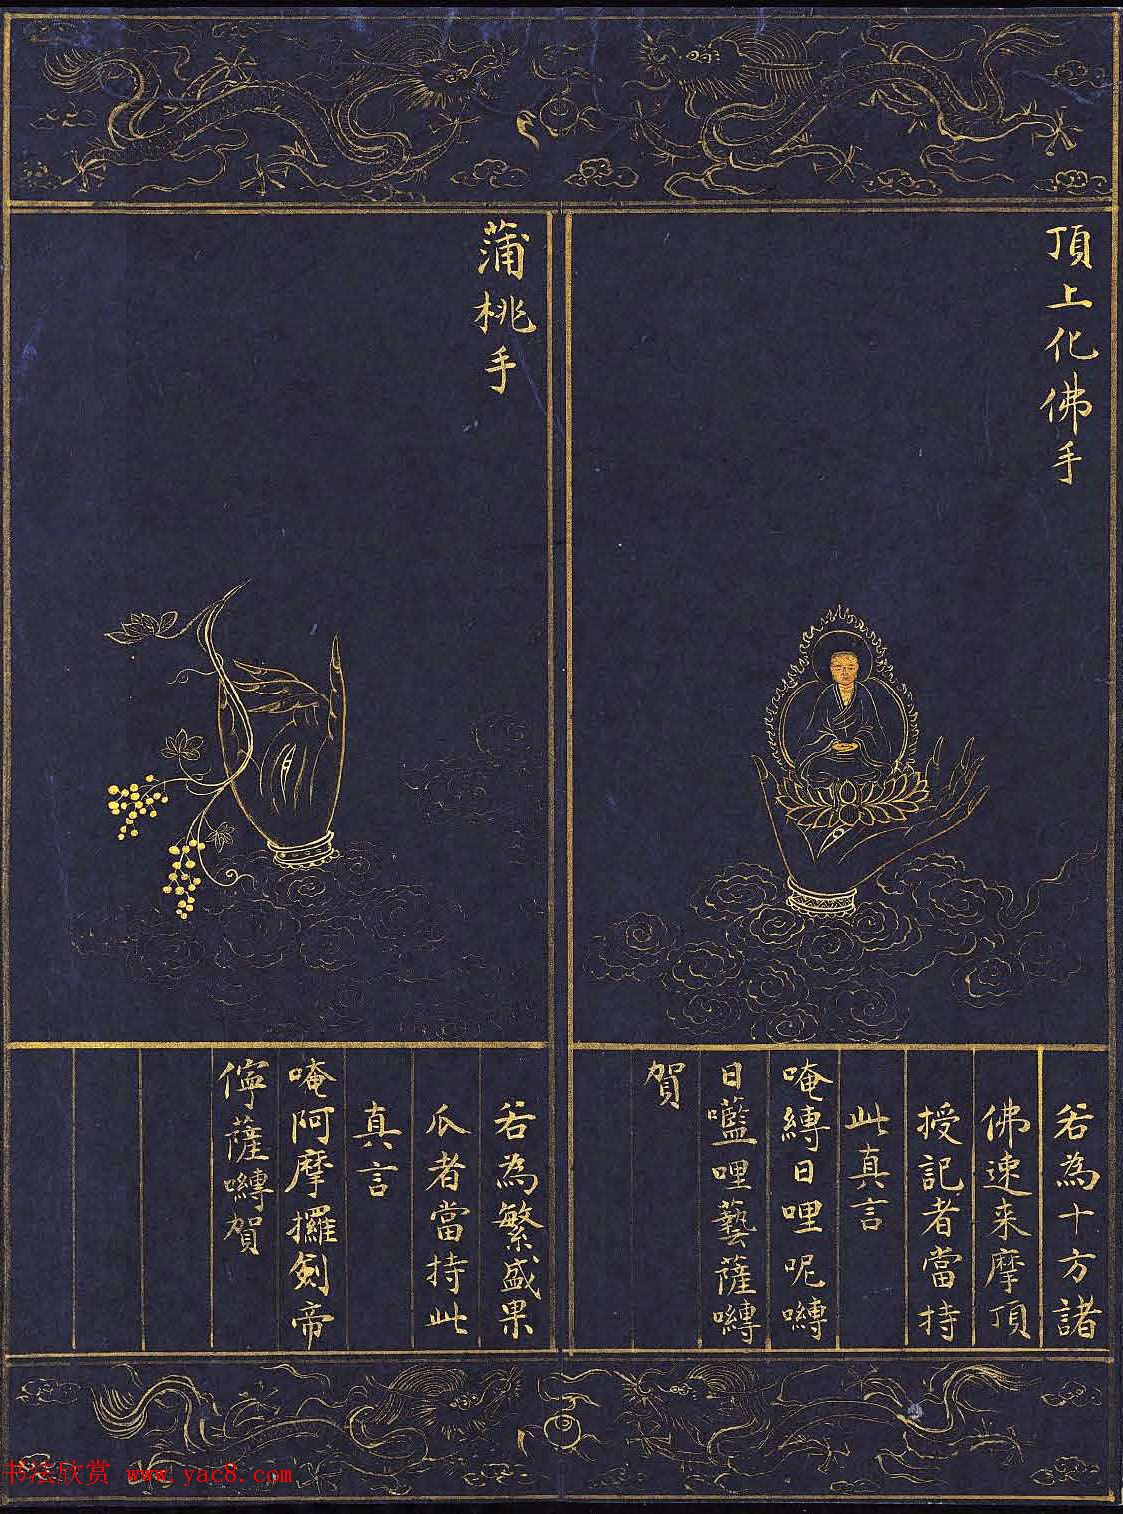 頂上化佛手
若為十方諸
佛速来摩頂
授記者當持
此真言
唵縛日哩呢嚩
日囕哩藝薩嚩
賀
蒲桃手
若為繁盛果
瓜者當持此
真言
唵阿摩攞剣帝
儜薩嚩賀
书法欣赏 www.yac8.com